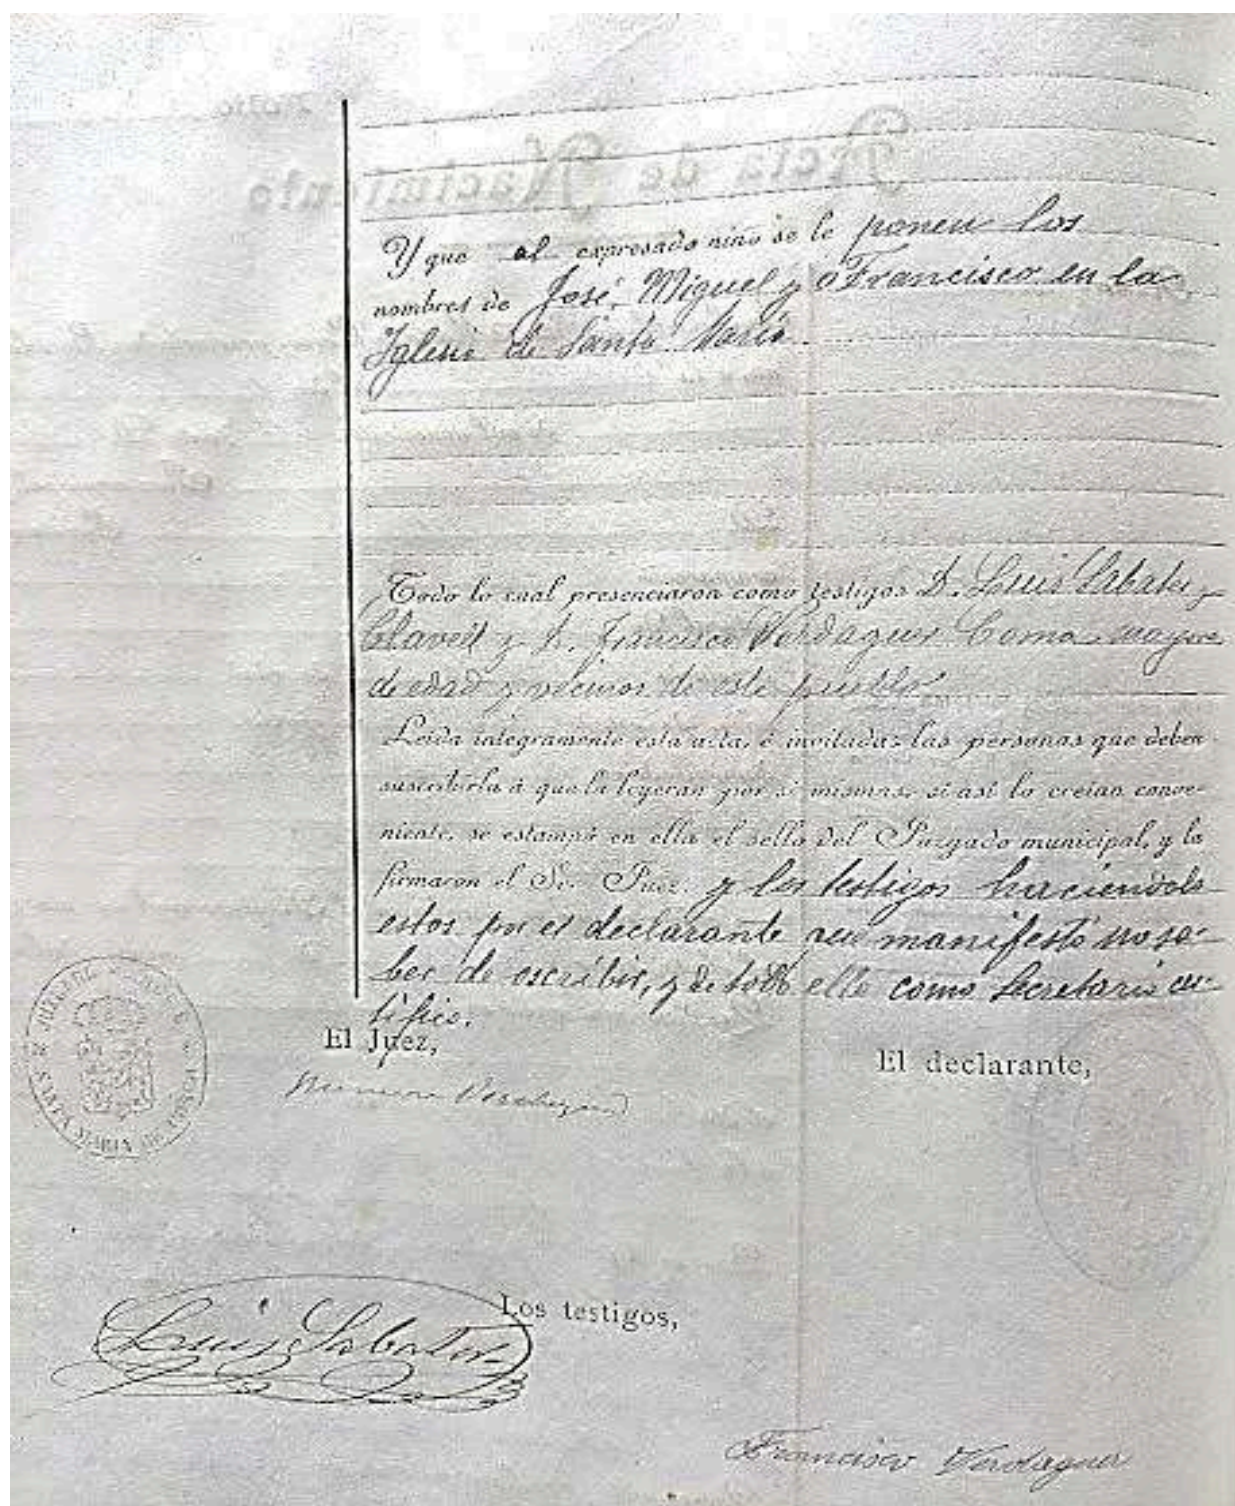 Y que al expresado niño se le ponen los
nombres de José, Miguel y Francisco en la
Iglesia de Santa María
Todo lo cual presenciaron como testigos D. Luis Sabater y
Clavell y D. Francisco Verdaguer Coma mayores
de edad y vecinos de este pueblo
Leida integramente esta acta, é invitadas las personas que deben
suscribirla á que la leyeran por sí mismas, si así lo creían conve-
niente, se estampó en ella el sello del Juzgado municipal, y la
firmaron el Sr. Juez y los testigos haciendolo
estos por el declarante que manifestó no sa-
ber de escribir, y de todo ello como Secretario cer-
tifico.
El Juez,
El declarante,
Verdaguer
SANTA MARIA DE
Los testigos,
Luis Sabater
Francisco Verdaguer
Acta de Nacimiento